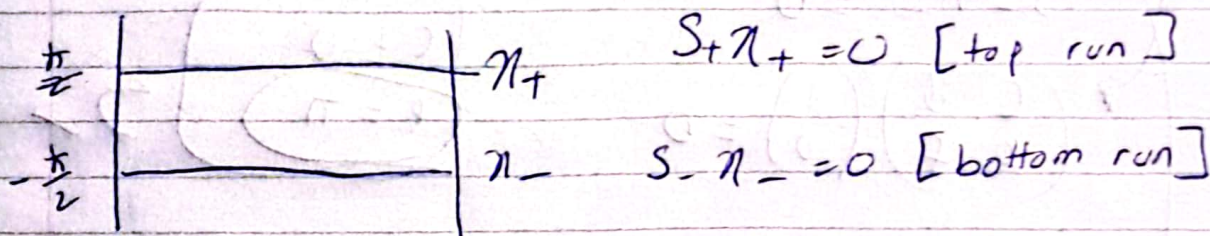 ħ/2 χ₊ S₊χ₊ = 0 [top run]
-ħ/2 χ₋ S₋χ₋ = 0 [bottom run]